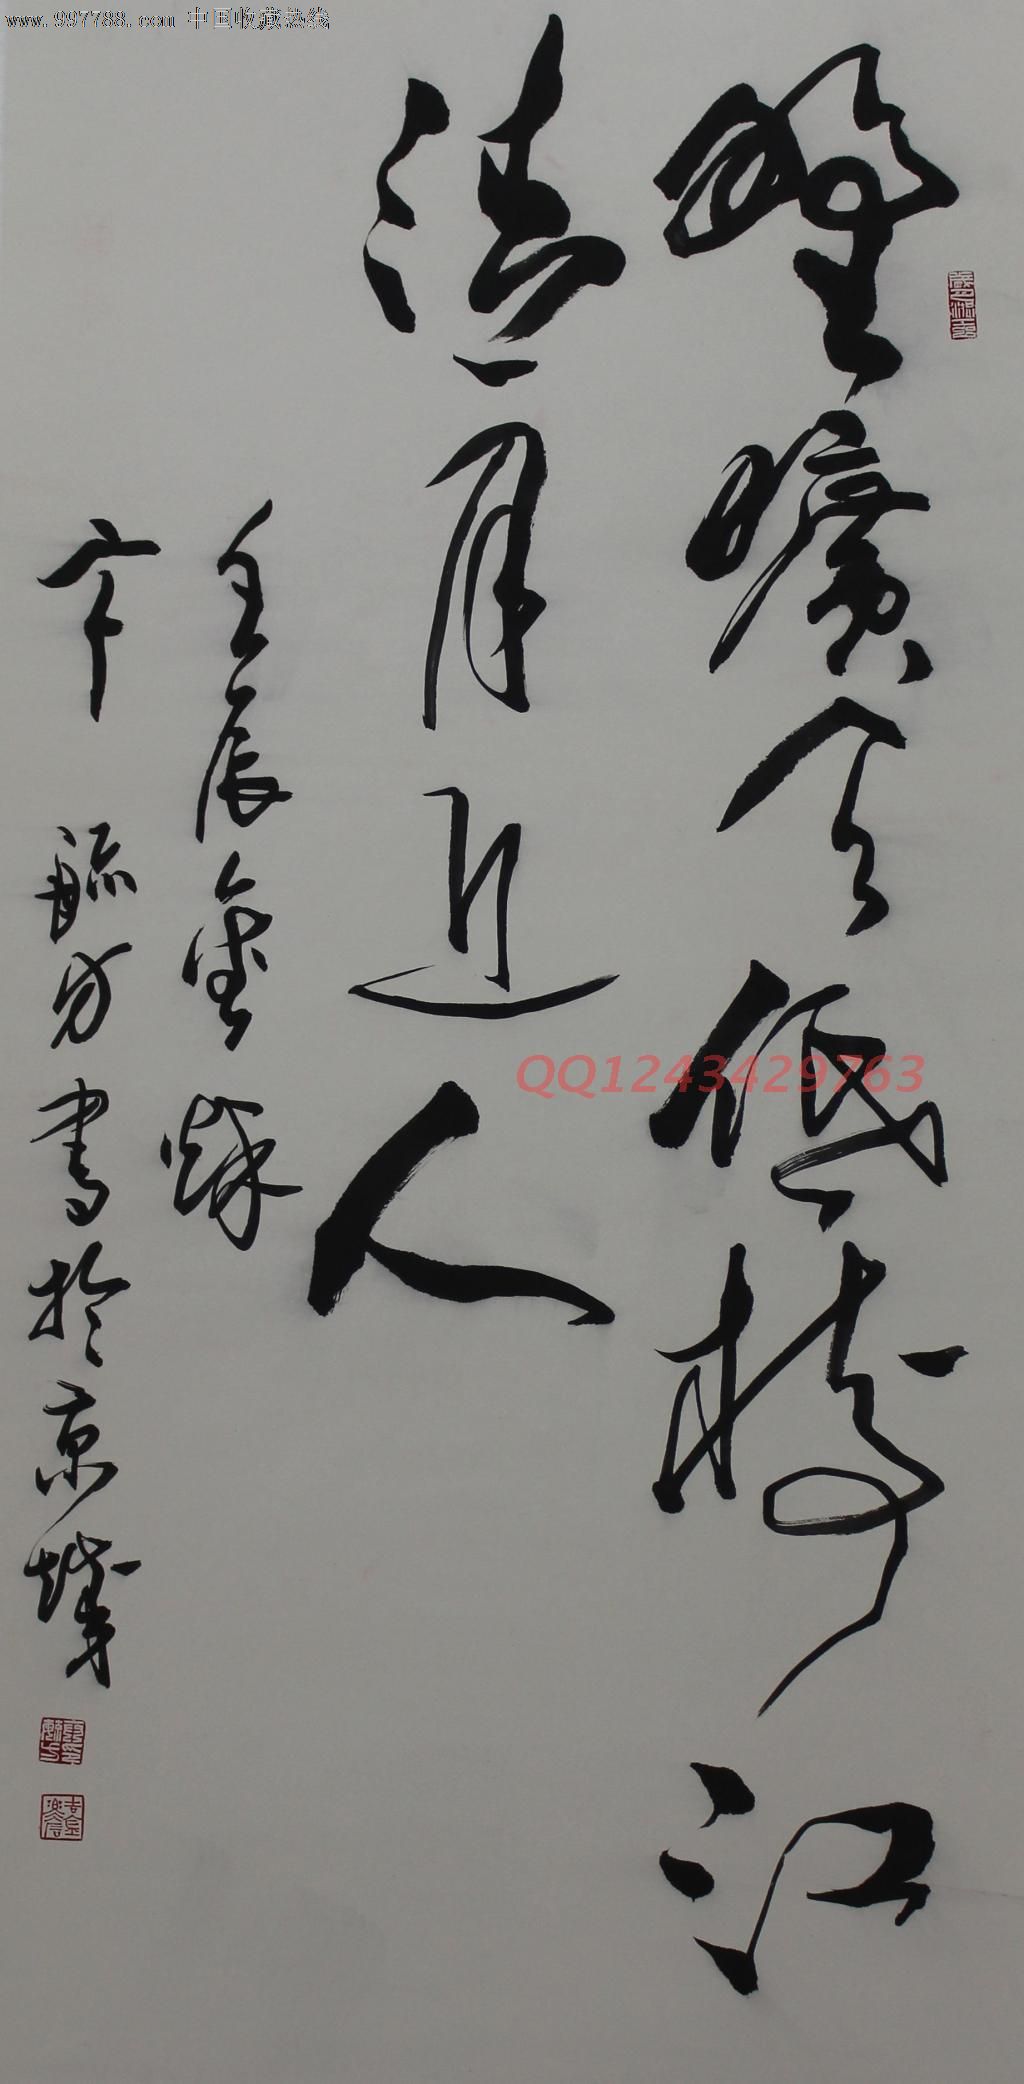 www.997788.com 中国收藏热线
野曠天低樹江
清月近人
壬辰金秋
方書於京城
QQ1243429763